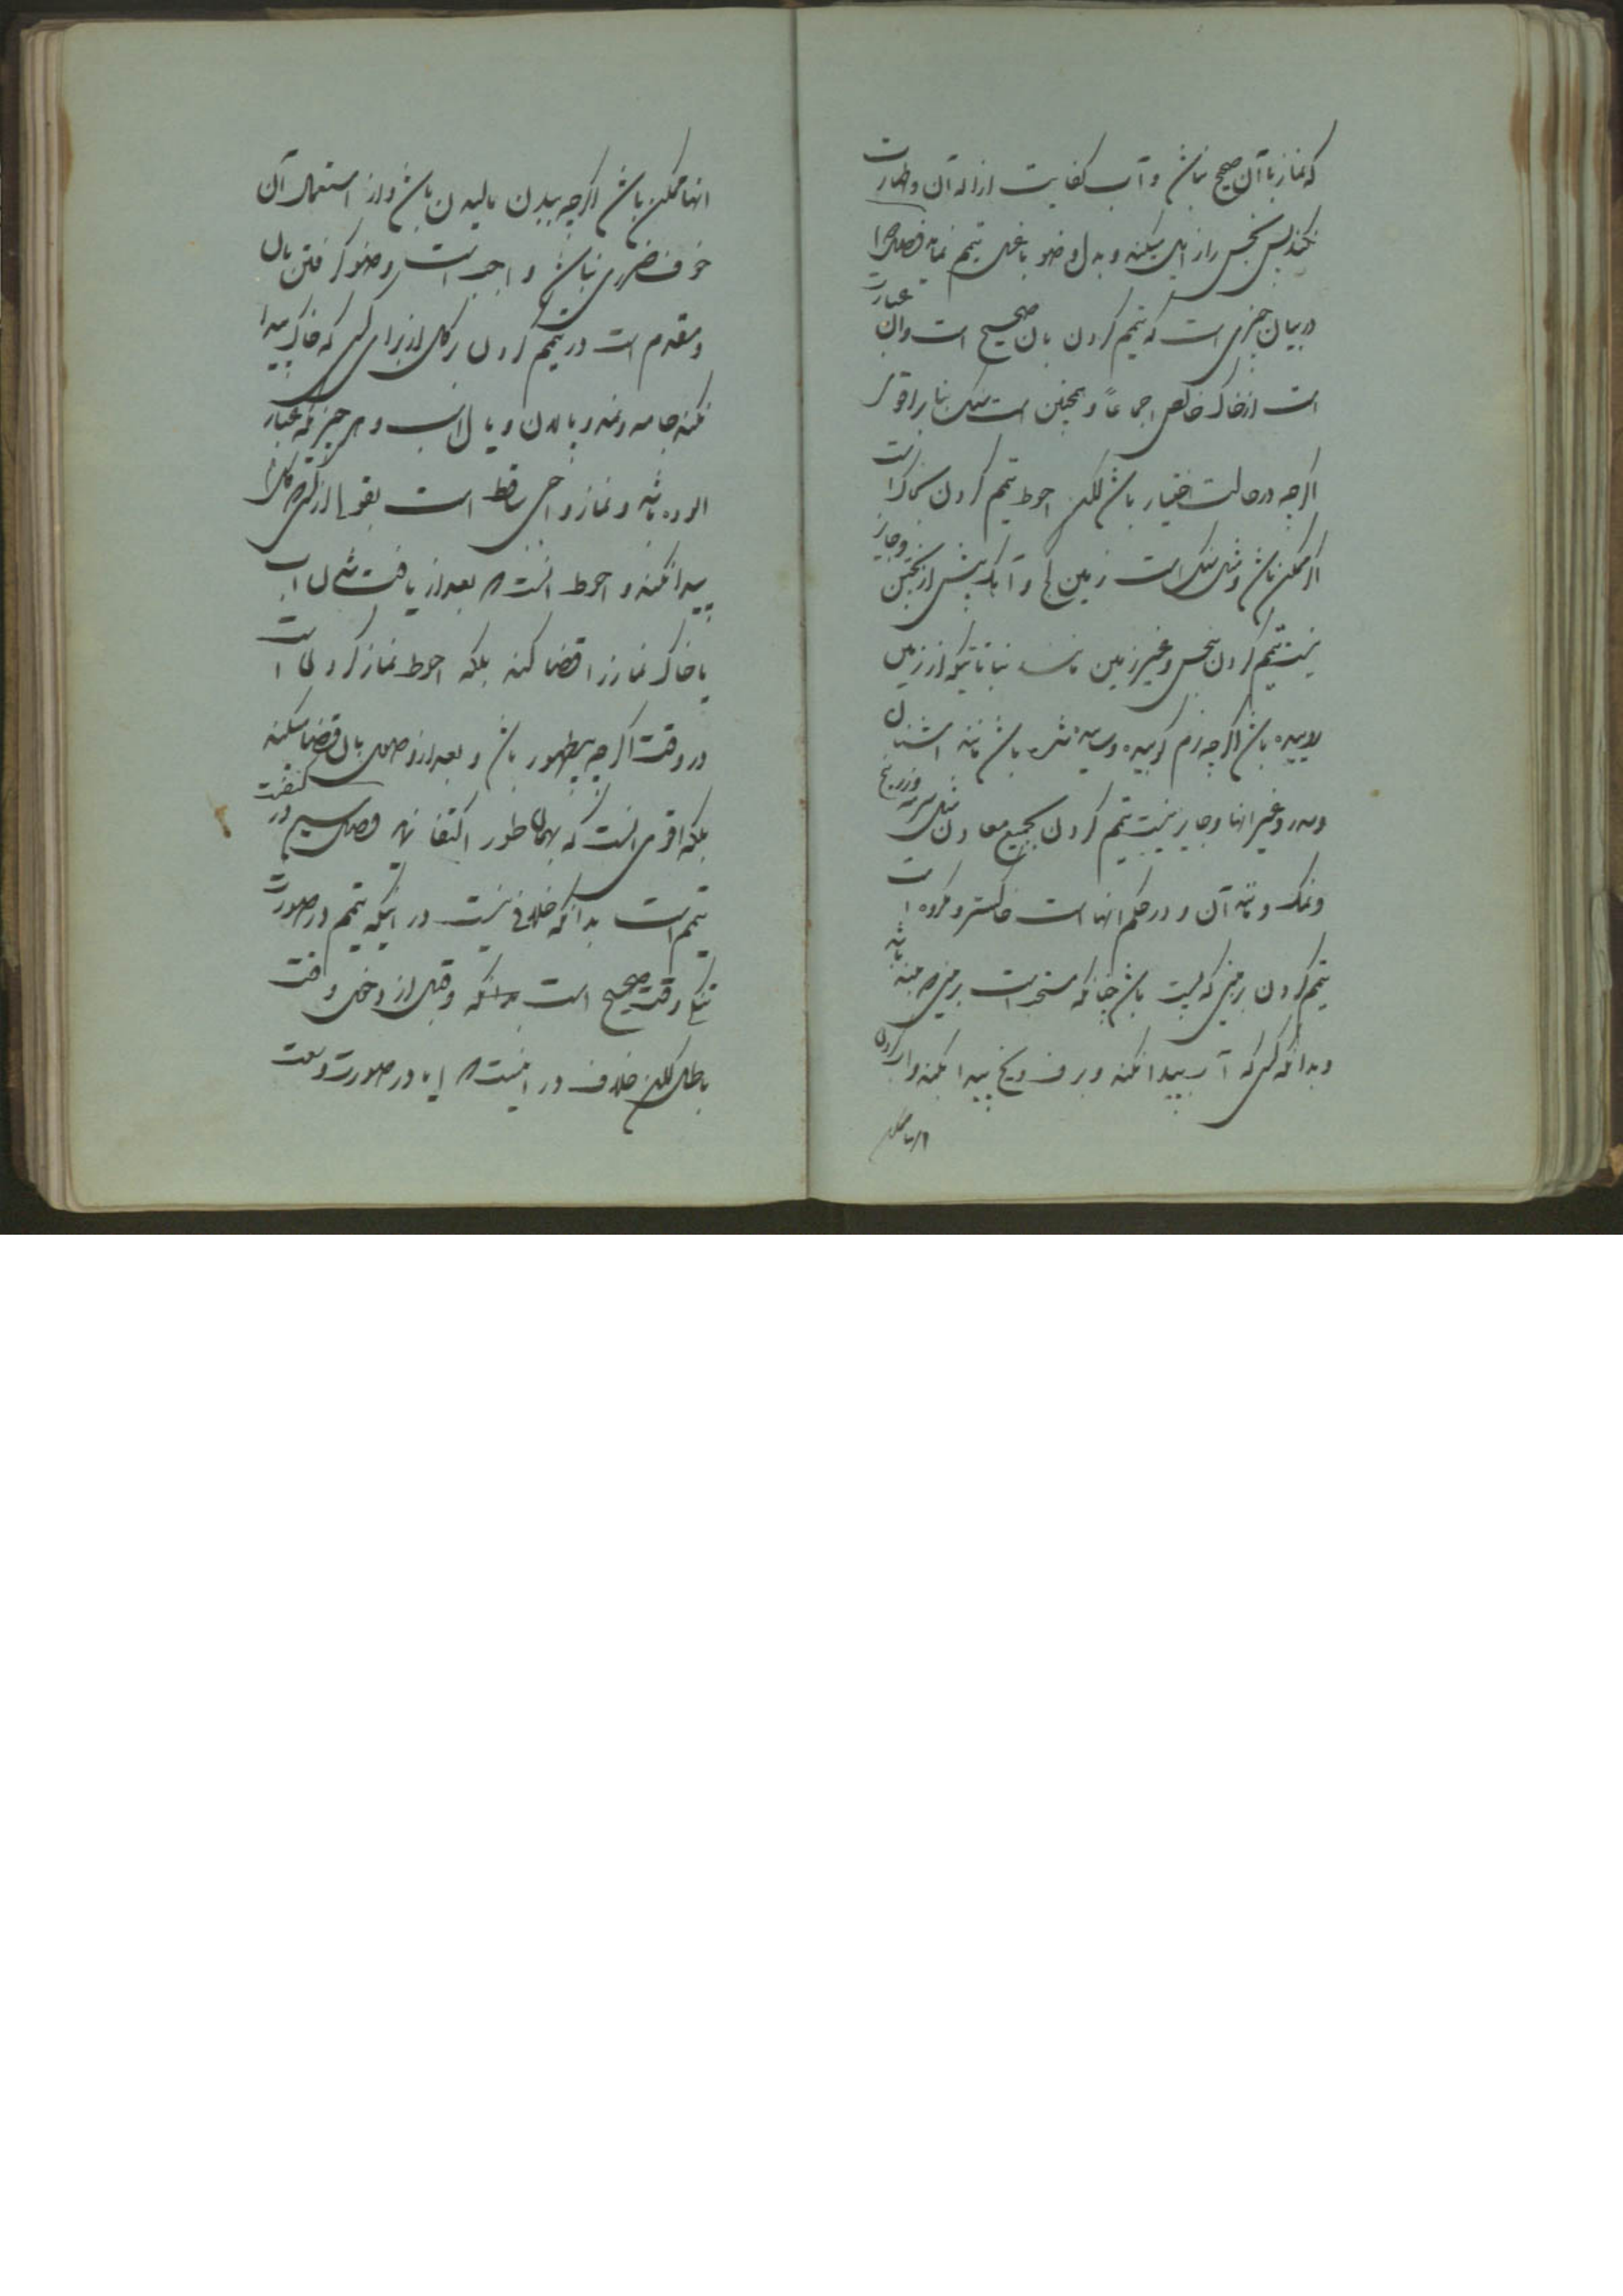 که نماز با آن صحیح نباشد و آب کفایت ازاله آن و طهارت
نکند پس نجس را زایل میکند و بدل وضو یا غسل تیمم نماید فصل
در بیان چیزی است که تیمم کردن بان صحیح است وان عبارت
است از خاک خالص اجماعاً و همچنین است سنک بنابر اقوی
اکرچه در حالت اختیار باشد لکن احوط تیمم کردن بخاک است
اکر ممکن باشد و مثل سنک است زمین کچ و آهک پیش از پختن وجایز
نیست تیمم کردن بنجس و غیر زمین مانند نباتاتیکه از زمین
روییده باشد اکرچه نرم کوبیده و ساییده شده باشد مانند اشنان
وسدر وغیر انها وجایز نیست تیمم کردن بجمیع معادن مثل سرمه وزرنیخ
ونمک ومانند آن و در حکم انها است خاکستر و مکروه است
تیمم کردن بزمینی که پست باشد چنانکه مستحب است بزمینی که بلند باشد
وبدانکه کسی که آب پیدا نکند و برف و یخ پیدا بکند و آب کردن
انها ممکن باشد اکرچه ببدن مالیدن باشد و از استعمال آن
خوف ضرری نباشد واجب است وضو کرفتن بان
ومقدم است در تیمم کردن بر کل از برای کسی که خاک پیدا
نکند جامه ونمد و پالان و یال اسب و هر چیزی که بغبار
الوده باشد و نماز واجبی ساقط است بقولی از کسی که کل را
پیدا نکند و احوط انست که بعد از یافت شدن اب
یا خاک نماز را قضا کند بلکه احوط نماز کردن است
در وقت اکرچه بیطهور باشد و بعد از وصول بان قضا میکند
بلکه اقوی انست که بهمان طور اکتفا نماید فصل سیم در کیفیت
تیمم است بدانکه خلافی نیست در اینکه تیمم در صورت
تنکی وقت صحیح است بدانکه وقبل از دخول وقت
باطل لکن خلاف در اینست که ایا در صورت وسعت